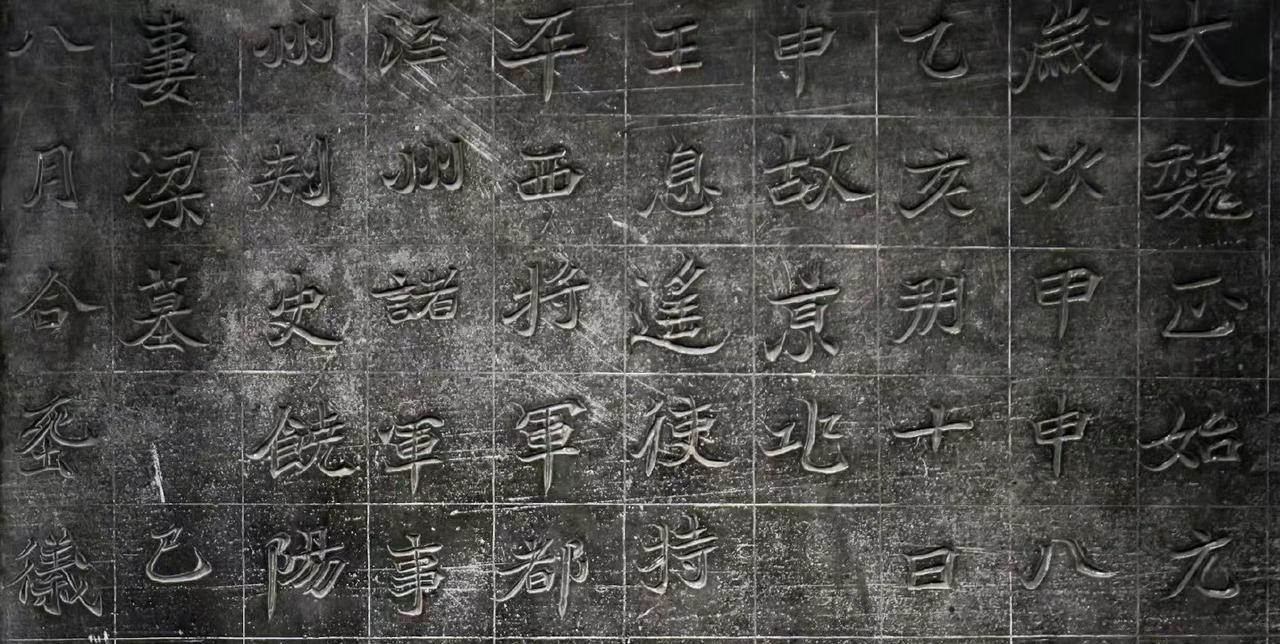 大魏正始元
歲次甲申八
乙亥朔十日
申故京兆
王息遙使持
平西將軍都
涇州諸軍事
州刺史饒陽
妻梁墓 己
八月合塟儀